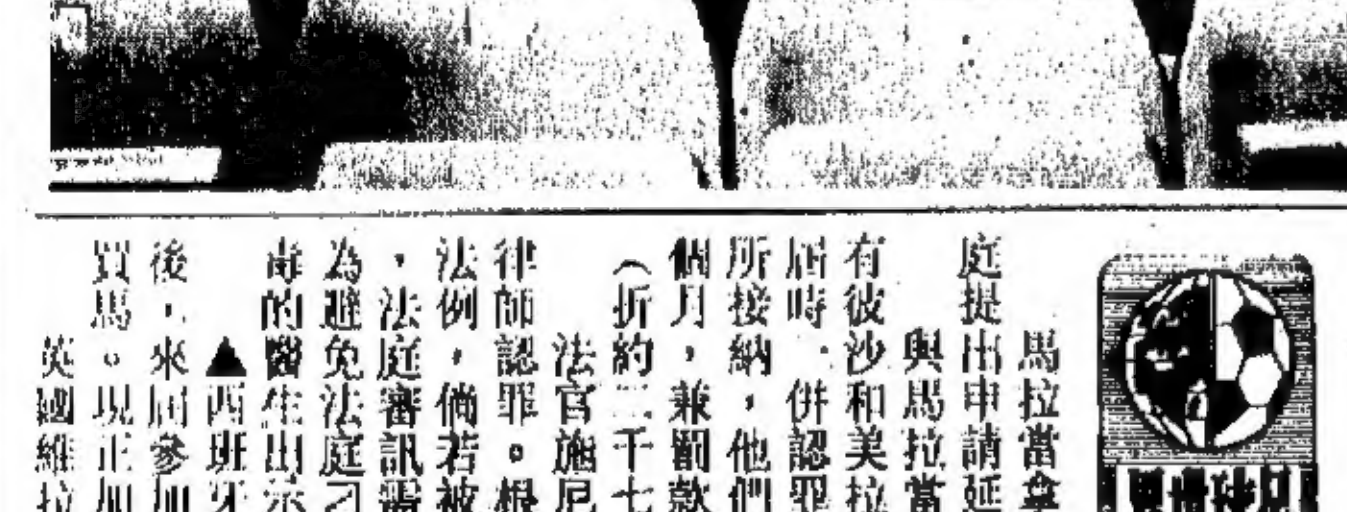 馬拉當拿
庭提出申請延
與馬拉當
有彼沙和美拉
屆時　併認罪
所接納，他們
個月，兼罰款
（折約二千七
法官施尼
律師認罪。根
法例，倘若被
，法庭審訊
為避免法庭
毒的醫生出示
▲西班牙
後，來屆參加
買馬。現正加
英國維拉